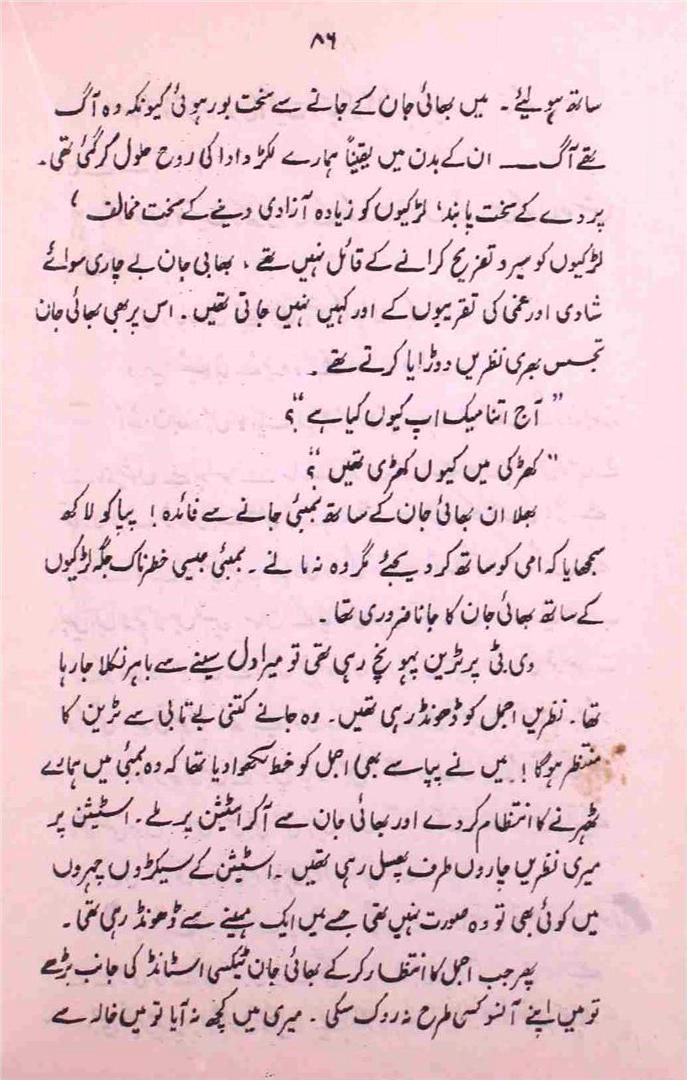 ۸۶
ساتھ ہولیئے۔ میں بھائی جان کے جانے سے سخت بور ہوئی کیونکہ وہ آگ
تھے آگ ــــ ان کے بدن میں یقیناً ہمارے لکڑ دادا کی روح حلول کر گئی تھی۔
پردے کے سخت پابند، لڑکیوں کو زیادہ آزادی دینے کے سخت مخالف ،
لڑکیوں کو سیر و تفریح کرانے کے قائل نہیں تھے ، بھابی جان بے چاری سوائے
شادی اور غمی کی تقریبوں کے اور کہیں نہیں جاتی تھیں۔ اس پر بھی بھائی جان
تجسس بھری نظریں دوڑایا کرتے تھے ۔
" آج اتنا میک اپ کیوں کیا ہے "؟
" کھڑکی میں کیوں کھڑی تھیں "؟
بھلا ان بھائی جان کے ساتھ بمبئی جانے سے فائدہ ! پپا کو لاکھ
سمجھایا کہ امی کو ساتھ کر دیجئے مگر وہ نہ مانے ۔ بمبئی جیسی خطرناک جگہ لڑکیوں
کے ساتھ بھائی جان کا جانا ضروری تھا ۔
وی ٹی پر ٹرین پہونچ رہی تھی تو میرا دل سینے سے باہر نکلا جا رہا
تھا۔ نظریں اجمل کو ڈھونڈ رہی تھیں۔ وہ جانے کتنی بے تابی سے ٹرین کا
منتظر ہوگا ! میں نے پپا سے بھی اجمل کو خط لکھوا دیا تھا کہ وہ بمبئی میں ہمارے
ٹھہرنے کا انتظام کر دے اور بھائی جان سے آکر اسٹیشن پر ملے ۔ اسٹیشن پر
میری نظریں چاروں طرف پھسل رہی تھیں ۔ اسٹیشن کے سیکڑوں چہروں
میں کوئی بھی تو وہ صورت نہیں تھی جسے میں ایک مہینے سے ڈھونڈ رہی تھی ۔
پھر جب اجمل کا انتظار کرکے بھائی جان ٹیکسی اسٹانڈ کی جانب بڑھے
تو میں اپنے آنسو کسی طرح نہ روک سکی ۔ میری میں کچھ نہ آیا تو میں خالد سے